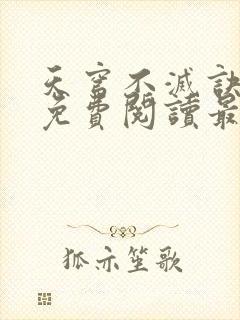 天穹不滅訣
免費閱讀最
狐亦笙歌